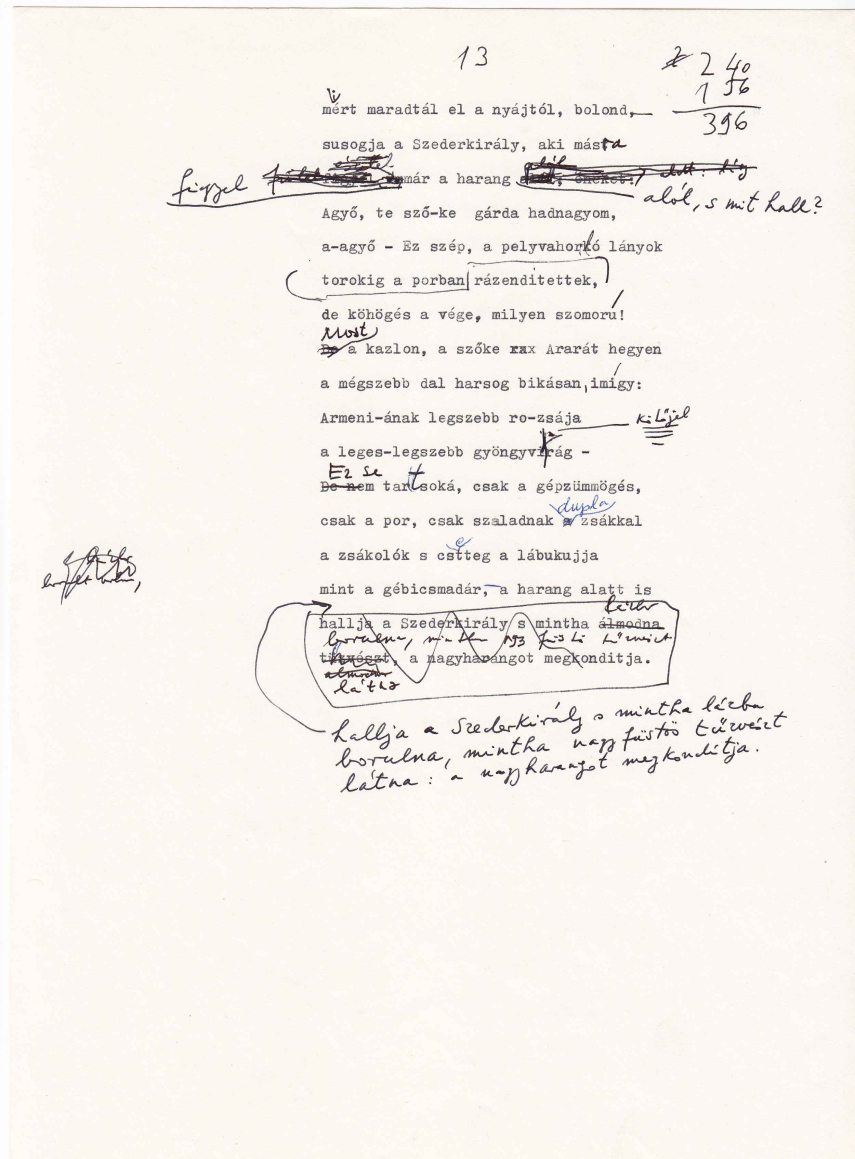 13
2 40
1 56
396
mért maradtál el a nyájtól, bolond,
susogja a Szederkirály, aki másra
figyel már a harang alól, s mit hall?
Agyő, te sző-ke gárda hadnagyom,
a-agyő - Ez szép, a pelyvahordó lányok
torokig a porban rázenditettek,
de köhögés a vége, milyen szomorú!
Most
De a kazlon, a szőke rax Ararát hegyen
a mégszebb dal harsog bikásan, imígy:
Armeni-ának legszebb ro-zsája
a leges-legszebb gyöngyvirág -
Ez se
De nem tartsoká, csak a gépzümmögés,
dupla
csak a por, csak szaladnak a zsákkal
a zsákolók s csetteg a lábukujja
mint a gébicsmadár, a harang alatt is
hallja a Szederkirály s mintha álmodna
borulna, mintha
tűzvészt, a nagyharangot megkonditja.
látna
hallja a Szederkirály s mintha lázba
borulna, mintha nagy füstös tűzvészt
látna: a nagyharangot megkondítja.